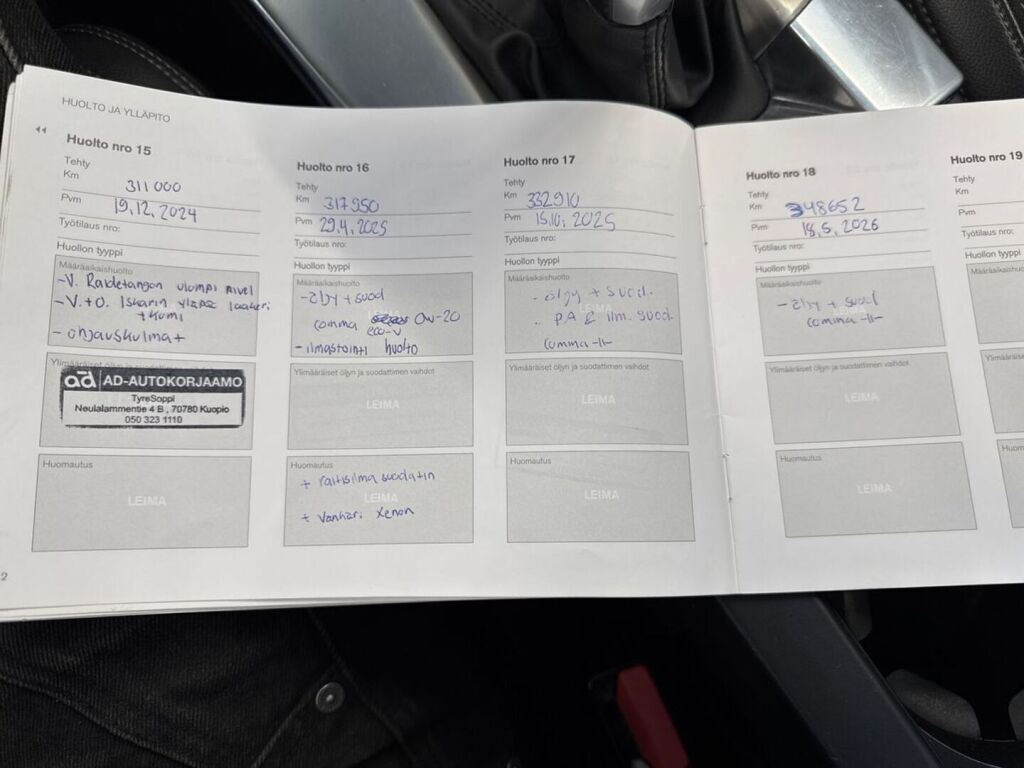 HUOLTO JA YLLÄPITO
Huolto nro 15
Tehty
Km 311 000
Pvm 19.12.2024
Työtilaus nro:
Huollon tyyppi
Määräaikaishuolto
- V. Raidetangon ulompi nivel
- V. + O. Iskarin yläpää laakeri
+ kumi
- ohjauskulmat
Ylimääräiset öljyn ja suodattimen vaihdot
ad AD-AUTOKORJAAMO
TyreSoppi
Neulalammentie 4 B, 70780 Kuopio
050 323 1110
Huomautus
LEIMA
Huolto nro 16
Tehty
Km 317 950
Pvm 29.4.2025
Työtilaus nro:
Huollon tyyppi
Määräaikaishuolto
- öljy + suod
comma 0W-20
eco-V
- ilmastointi huolto
Ylimääräiset öljyn ja suodattimen vaihdot
LEIMA
Huomautus
LEIMA
+ raitisilma suodatin
+ Vanhari Xenon
Huolto nro 17
Tehty
Km 332910
Pvm 15.10.2025
Työtilaus nro:
Huollon tyyppi
Määräaikaishuolto
- öljy + suod.
.. P.A & ilm. suod.
comma -11-
Ylimääräiset öljyn ja suodattimen vaihdot
LEIMA
Huomautus
LEIMA
Huolto nro 18
Tehty
Km 348652
Pvm 18.5.2026
Työtilaus nro:
Huollon tyyppi
Määräaikaishuolto
- öljy + suod
comma -11-
Ylimääräiset öljyn ja suodattimen vaihdot
LEIMA
Huomautus
LEIMA
Huolto nro 19
Tehty
Km
Pvm
Työtilaus nro:
Huollon
Määräaikaishu
Ylimääräi
Huom
2